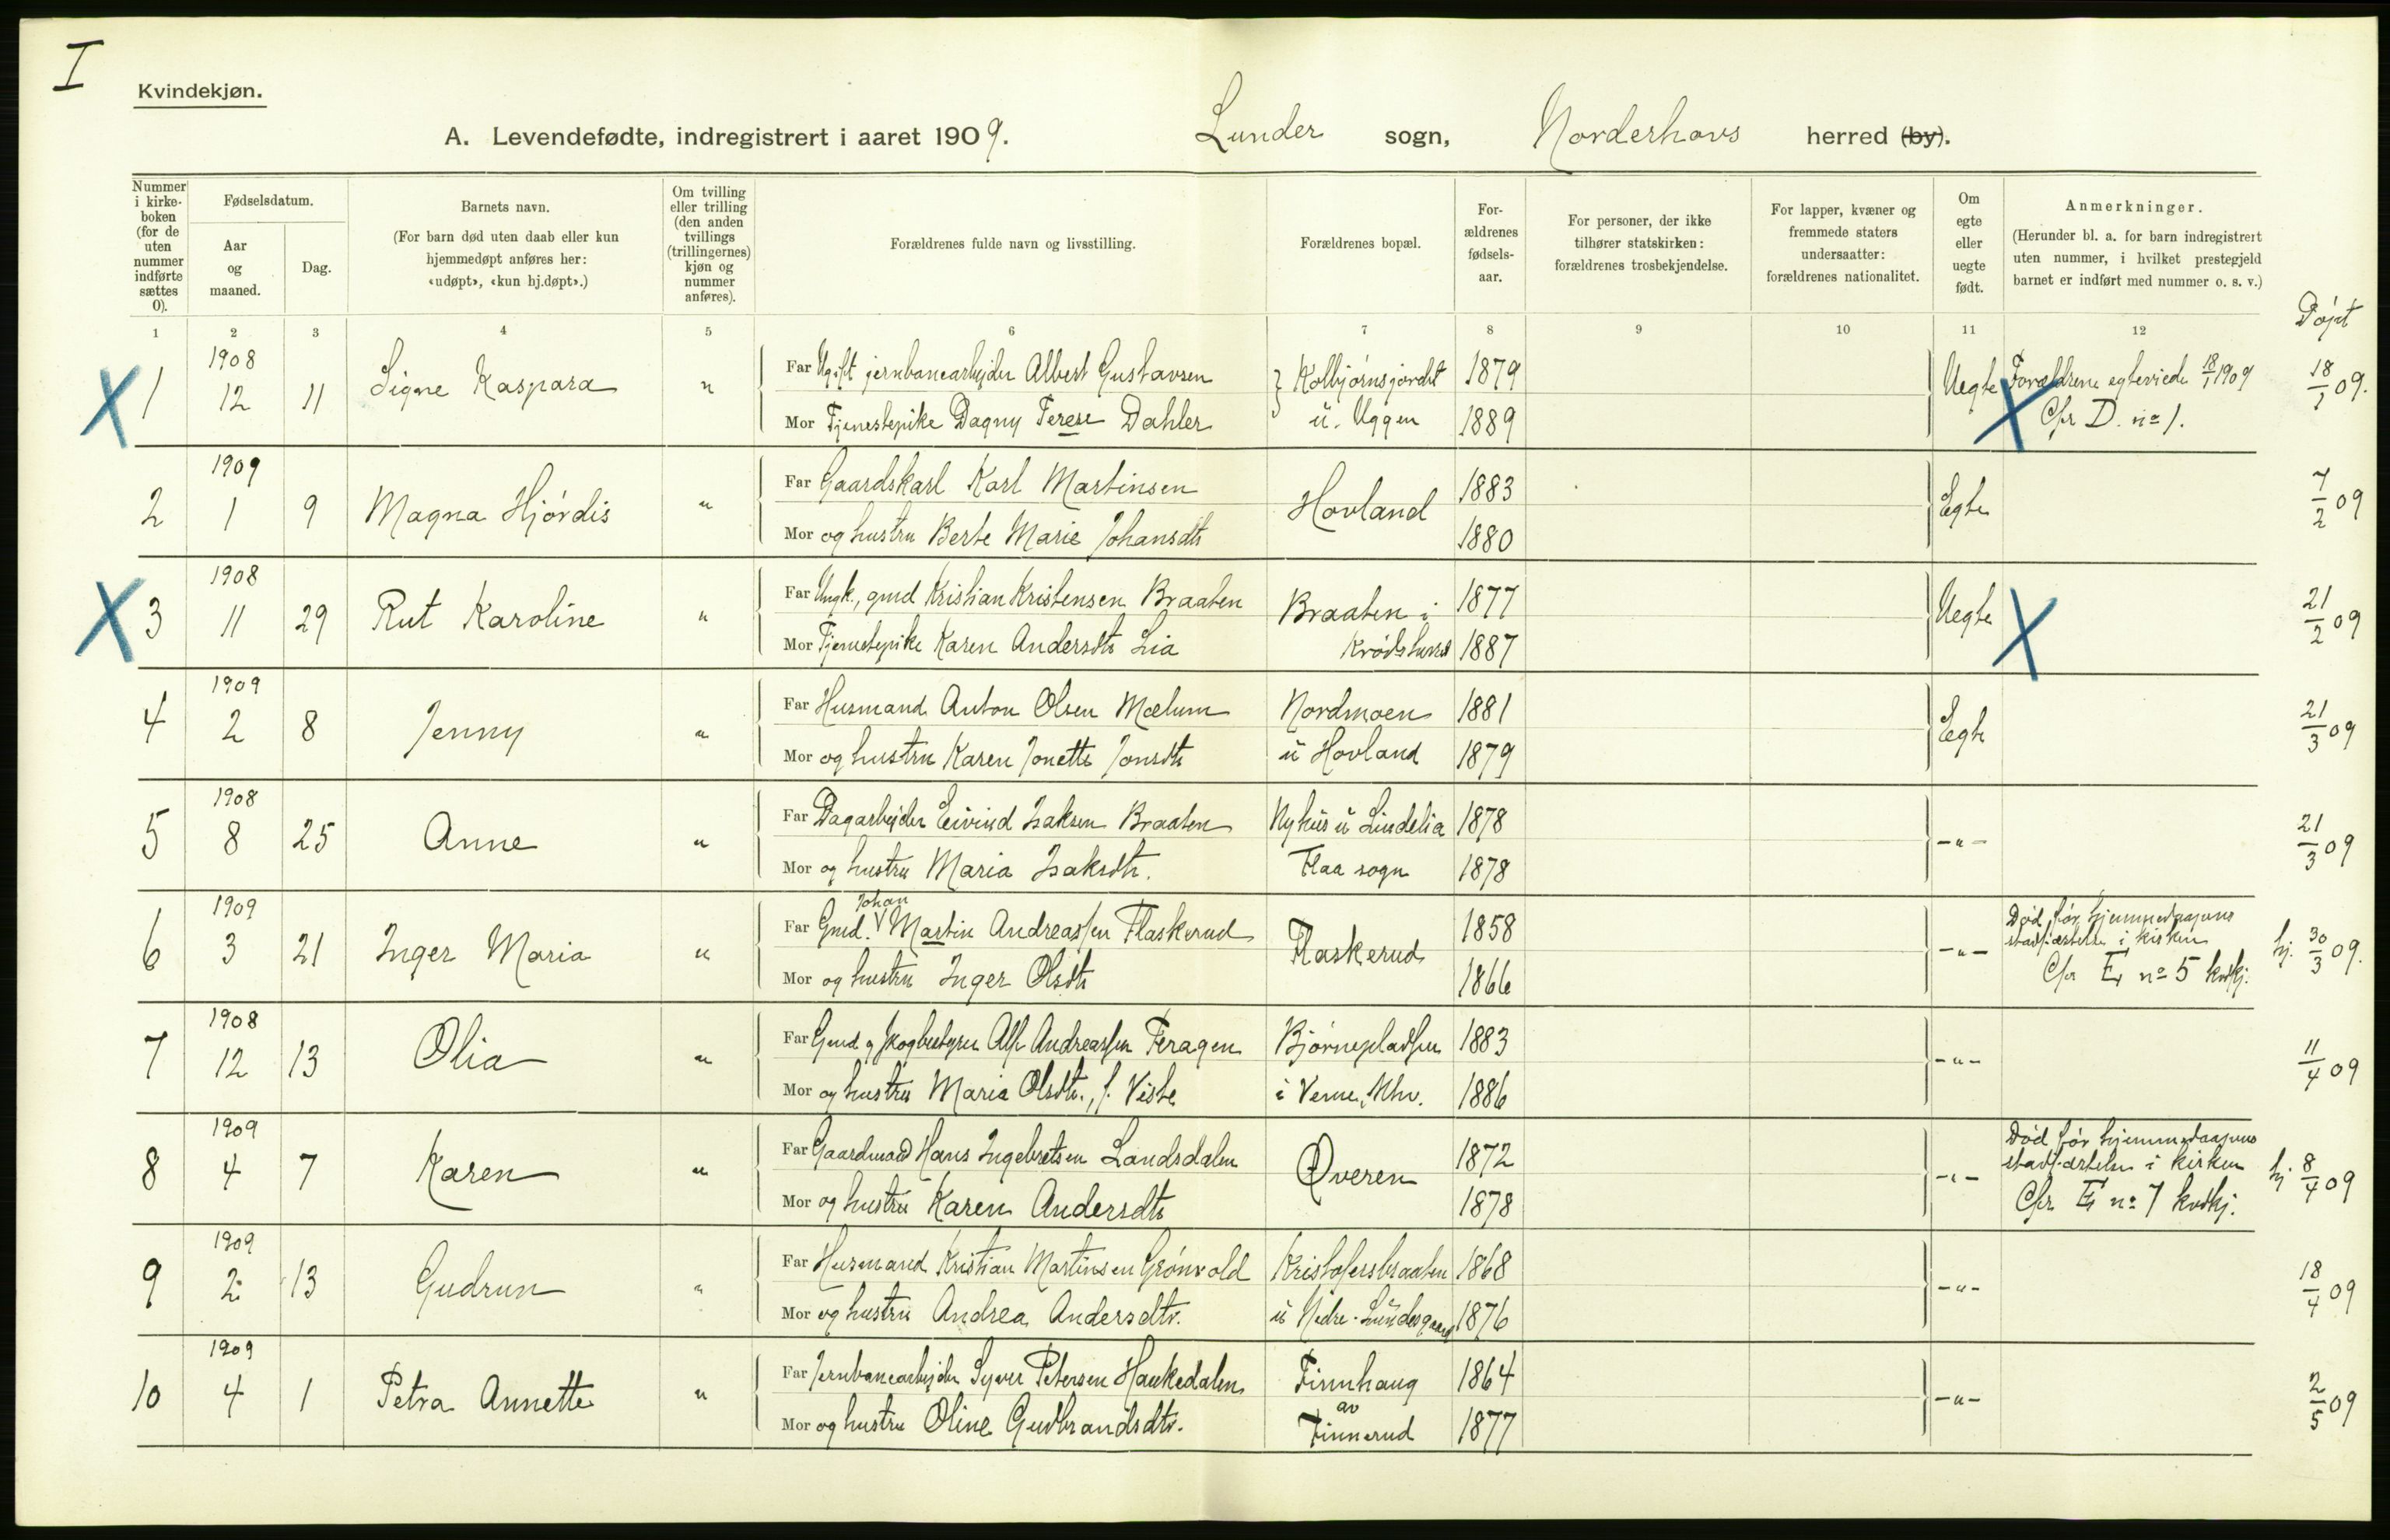 I
Kvindekjøn.
A. Levendefødte, indregistrert i aaret 1909. Lunder sogn, Norderhovs herred (by).
Nummer i kirke-boken (for de uten nummer indførte sættes 0).
Fødselsdatum.
Aar og maaned.
Dag.
Barnets navn.
(For barn død uten daab eller kun hjemmedøpt anføres her: «udøpt», «kun hj.døpt».)
Om tvilling eller trilling (den anden tvillings (trillingernes) kjøn og nummer anføres).
Forældrenes fulde navn og livsstilling.
Forældrenes bopæl.
For-ældrenes fødsels-aar.
For personer, der ikke tilhører statskirken: forældrenes trosbekjendelse.
For lapper, kvæner og fremmede staters undersaatter: forældrenes nationalitet.
Om egte eller uegte født.
Anmerkninger.
(Herunder bl. a. for barn indregistrert uten nummer, i hvilket prestegjeld barnet er indført med nummer o. s. v.)
Døpt
1 2 3 4 5 6 7 8 9 10 11 12
X 1 1908 12 11 Signe Kaspara " Far Ugift jernbanearbeider Albert Gustavsen Kolbjørnsjordet 1879 Uegte Forældrene egteviede 18/1 1909 18/1 09.
Mor Tjenestepike Dagny Terese Dahler u. Uggen 1889 X Cfr D. no 1.
2 1909 1 9 Magna Hjørdis " Far Gaardskarl Karl Martinsen Hovland 1883 Egte 7/2 09
Mor og hustru Berte Marie Johansdtr 1880
X 3 1908 11 29 Rut Karoline " Far Ungk., gmd Kristian Kristensen Braaten Braaten i 1877 Uegte X 21/2 09
Mor Tjenestepike Karen Andersdtr Lia Krødsherred 1887
4 1909 2 8 Jenny " Far Husmand Anton Olsen Mælum Nordmoen 1881 Egte 21/3 09
Mor og hustru Karen Jonette Jonsdtr u Hovland 1879
5 1908 8 25 Anne " Far Dagarbeider Eivind Isaksen Braaten Nyhus u Lindelia 1878 -"- 21/3 09
Mor og hustru Maria Isaksdtr. Flaa sogn 1878
6 1909 3 21 Inger Maria " Far Gmd. Johan Martin Andreassen Flaskerud Flaskerud 1858 -"- Død før hjemmedaapens stadfæstelse i kirken hj. 30/3 09.
Mor og hustru Inger Olsdtr 1866 Cfr E no 5 kvkj.
7 1908 12 13 Olia " Far Gmd og skogbestyrer Alf Andreassen Feragen Bjørnepladsen 1883 -"- 11/4 09
Mor og hustru Maria Olsdtr., f. Viste i Verne, Nhv. 1886
8 1909 4 7 Karen " Far Gaardmand Hans Ingebretsen Landsdalen Øveren 1872 -"- Død før hjemmedaapens stadfæstelse i kirken hj 8/4 09
Mor og hustru Karen Andersdtr 1878 Cfr E no 7 kvkj.
9 1909 2 13 Gudrun " Far Husmand Kristian Martinsen Grønvold Kristofersbraaten 1868 -"- 18/4 09
Mor og hustru Andrea Andersdtr. u Nedre-Lundesgaard 1876
10 1909 4 1 Petra Annette " Far Jernbanearbeider Syver Petersen Haukedalen Finnhaug 1864 -"- 2/5 09
Mor og hustru Oline Gudbrandsdtr. av Finnerud 1877